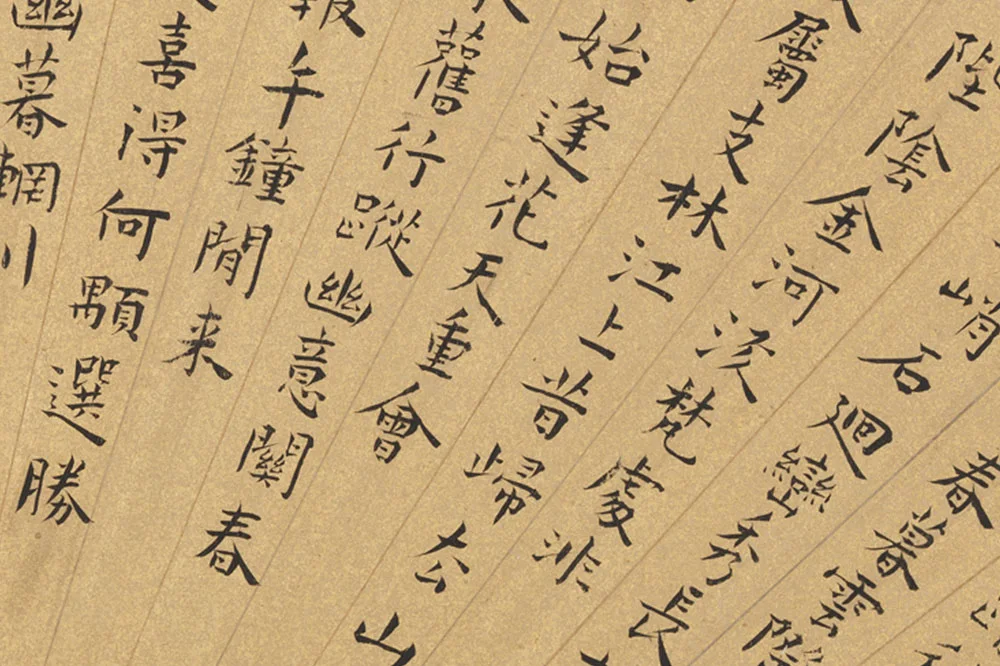 春暮雲
峭石廻巒秀長
陰金河梵處非
屬支林江上昔歸公山
始逢花天重會
舊行蹤幽意關春
報千鐘閒来
喜得何顒選勝
幽暮輞川